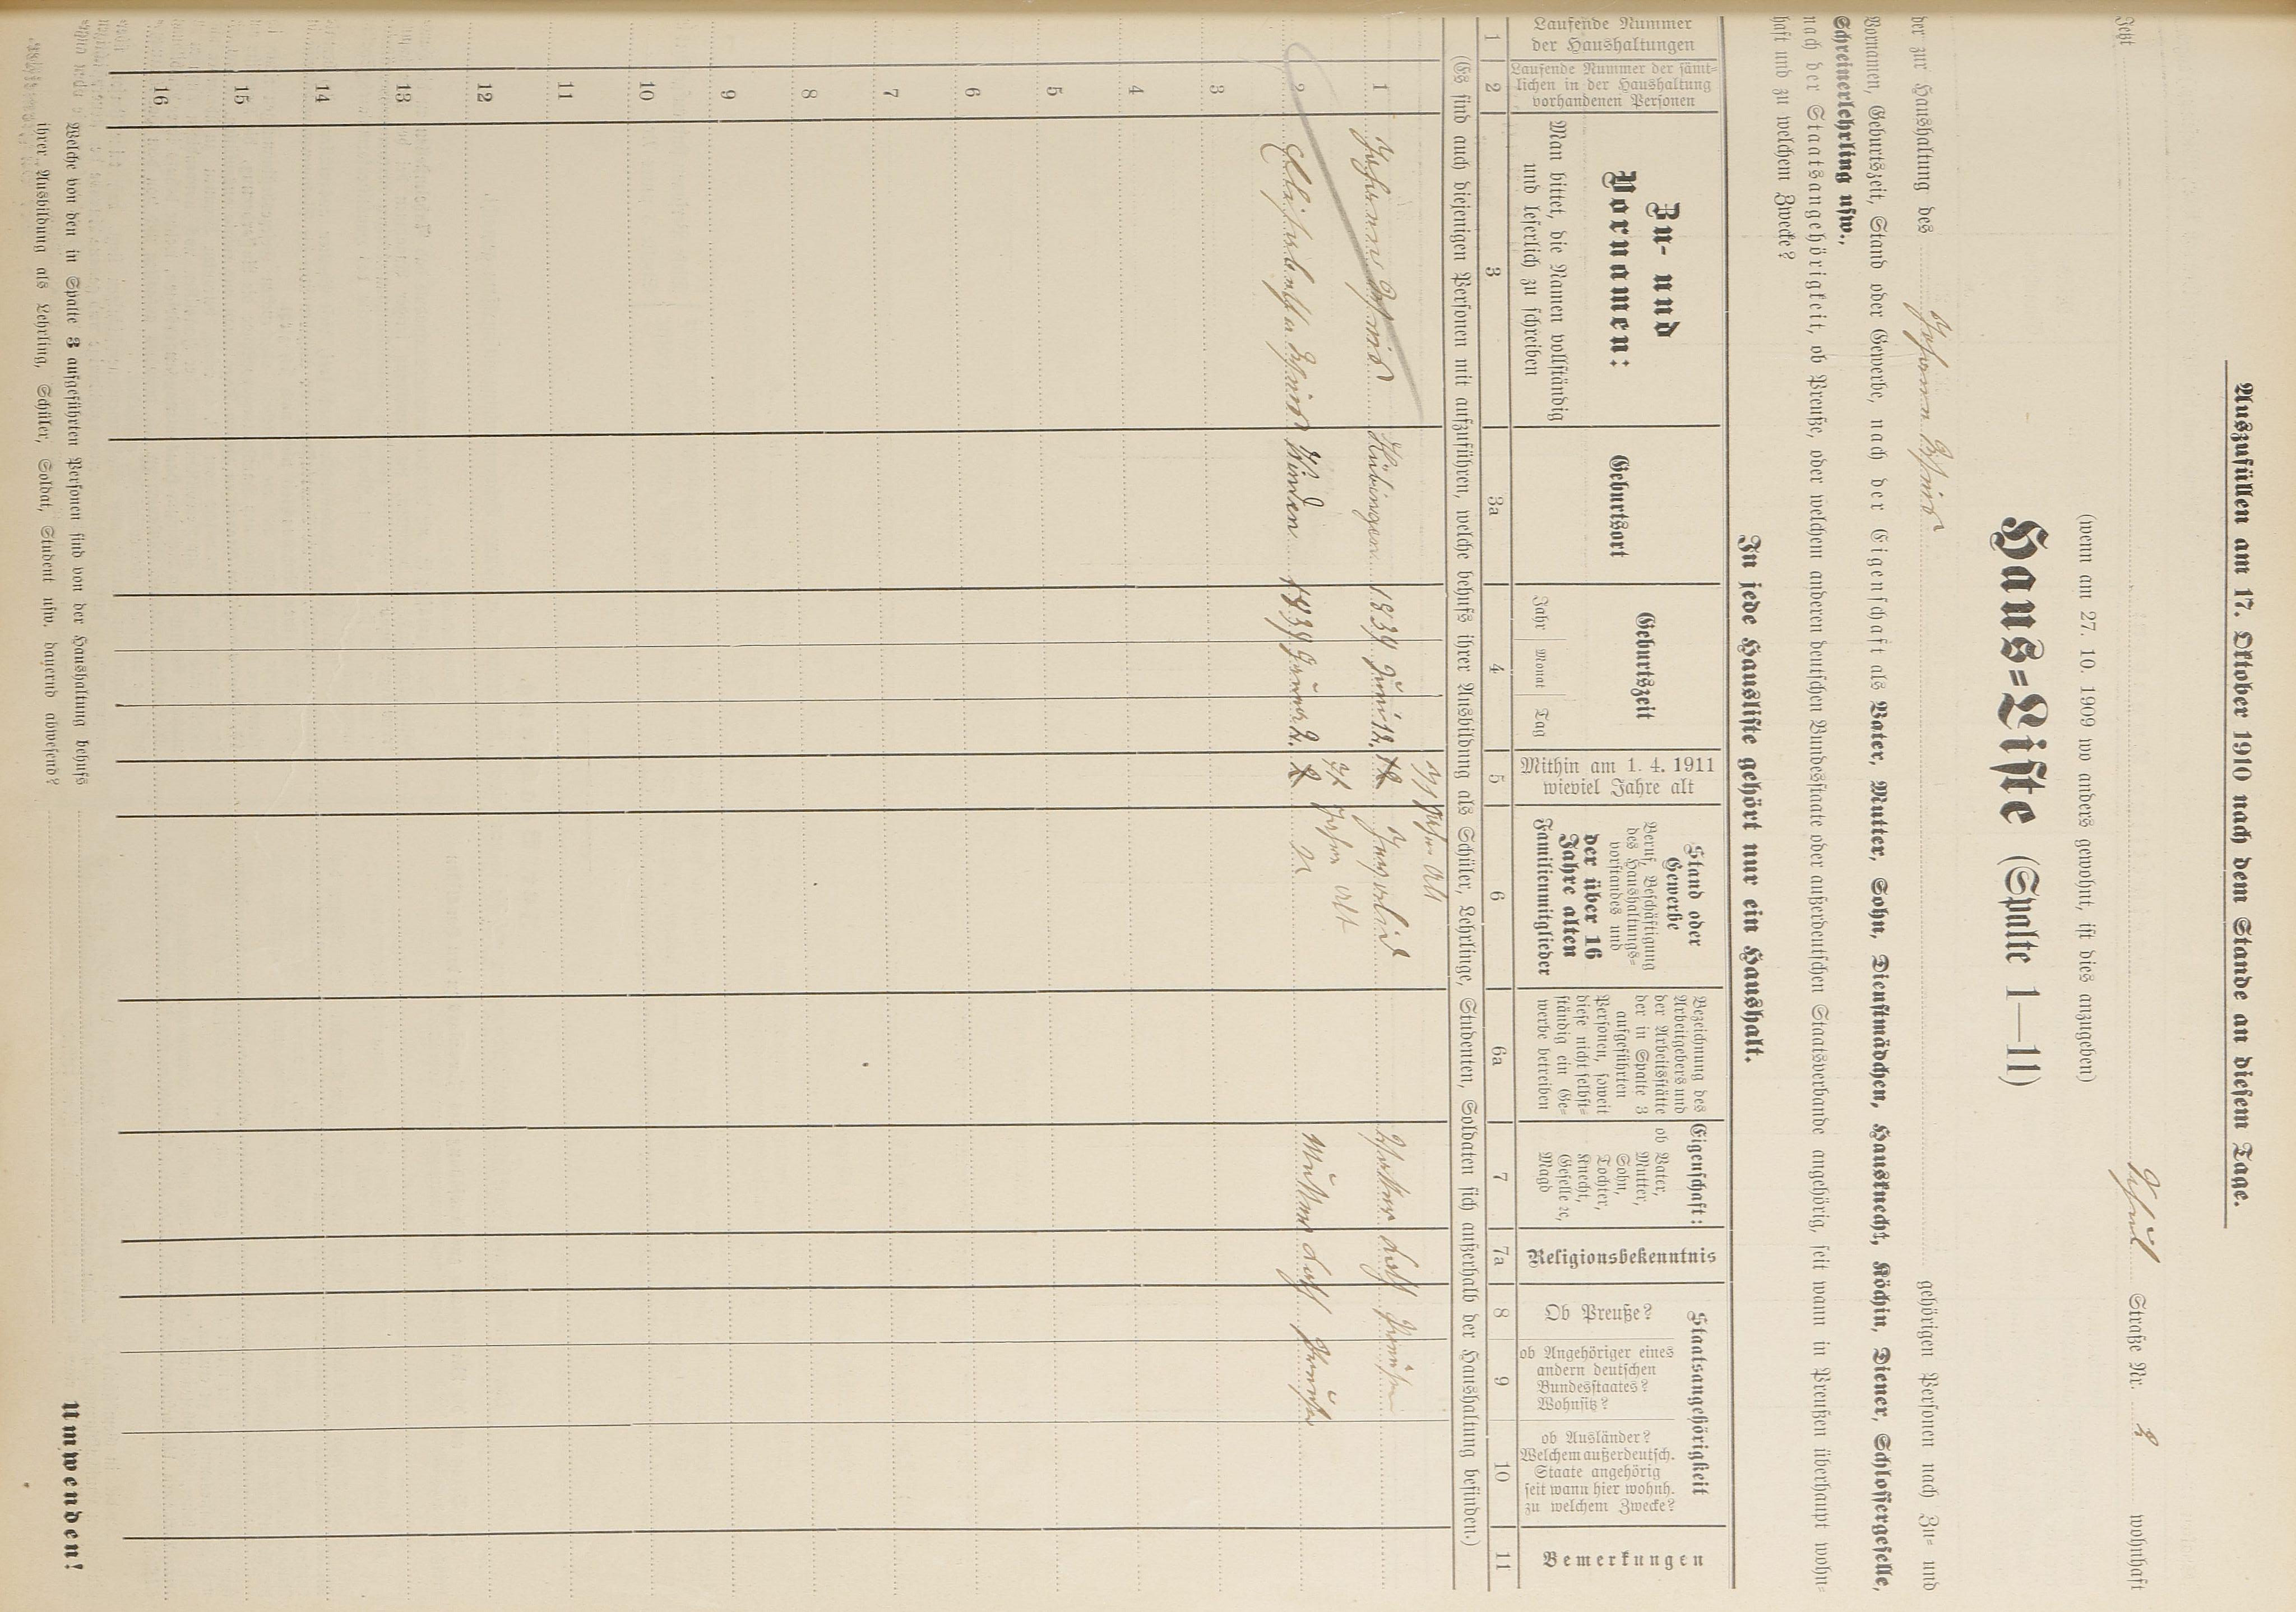 Auszufüllen am 17. Oktober 1910 nach dem Stande an diesem Tage.
Jetzt Schul Straße Nr. 2 wohnhaft
(wenn am 27. 10. 1909 wo anders gewohnt, ist dies anzugeben)
Haus=Liste (Spalte 1—11)
der zur Haushaltung des Johann gehörigen Personen nach Zu= und
Vornamen, Geburtszeit, Stand oder Gewerbe, nach der Eigenschaft als Vater, Mutter, Sohn, Dienstmädchen, Hausknecht, Köchin, Diener, Schlossergeselle,
Schreinerlehrling usw.,
nach der Staatsangehörigkeit, ob Preuße, oder welchem anderen deutschen Bundesstaate oder außerdeutschen Staatsverbande angehörig, seit wann in Preußen überhaupt wohn=
haft und zu welchem Zwecke?
In jede Hausliste gehört nur ein Haushalt.
Laufende Nummer
der Haushaltungen
Laufende Nummer der sämt=
lichen in der Haushaltung
vorhandenen Personen
Zu- und
Vornamen:
Man bittet, die Namen vollständig
und leserlich zu schreiben
Geburtsort
Geburtszeit
Jahr Monat Tag
Mithin am 1. 4. 1911
wieviel Jahre alt
Stand oder
Gewerbe
Beruf, Beschäftigung
des Haushaltungs=
vorstandes und
der über 16
Jahre alten
Familienmitglieder
Bezeichnung des
Arbeitgebers und
der Arbeitsstätte
der in Spalte 3
aufgeführten
Personen, soweit
diese nicht selbst=
ständig ein Ge=
werbe betreiben
Eigenschaft:
ob Vater,
Mutter,
Sohn,
Tochter,
Knecht,
Geselle ꝛc,
Magd
Religionsbekenntnis
Staatsangehörigkeit
Ob Preuße?
ob Angehöriger eines
andern deutschen
Bundesstaates?
Wohnsitz?
ob Ausländer?
Welchem außerdeutsch.
Staate angehörig
seit wann hier wohnh.
zu welchem Zwecke?
Bemerkungen
1 2 3 3a 4 5 6 6a 7 7a 8 9 10 11
(Es sind auch diejenigen Personen mit aufzuführen, welche behufs ihrer Ausbildung als Schüler, Lehrlinge, Studenten, Soldaten sich außerhalb der Haushaltung befinden.)
Jahr alt
1 Johann Hübingen 1834 Juni 12. Invalid Vater kath Preuße
71 Jahre alt
2 Elisabetha Winden 1839 Januar 2. Mutter kath Preuße
3
4
5
6
7
8
9
10
11
12
13
14
15
16
Welche von den in Spalte 3 aufgeführten Personen sind von der Haushaltung behufs
ihrer Ausbildung als Lehrling, Schüler, Soldat, Student usw. dauernd abwesend?
Umwenden!